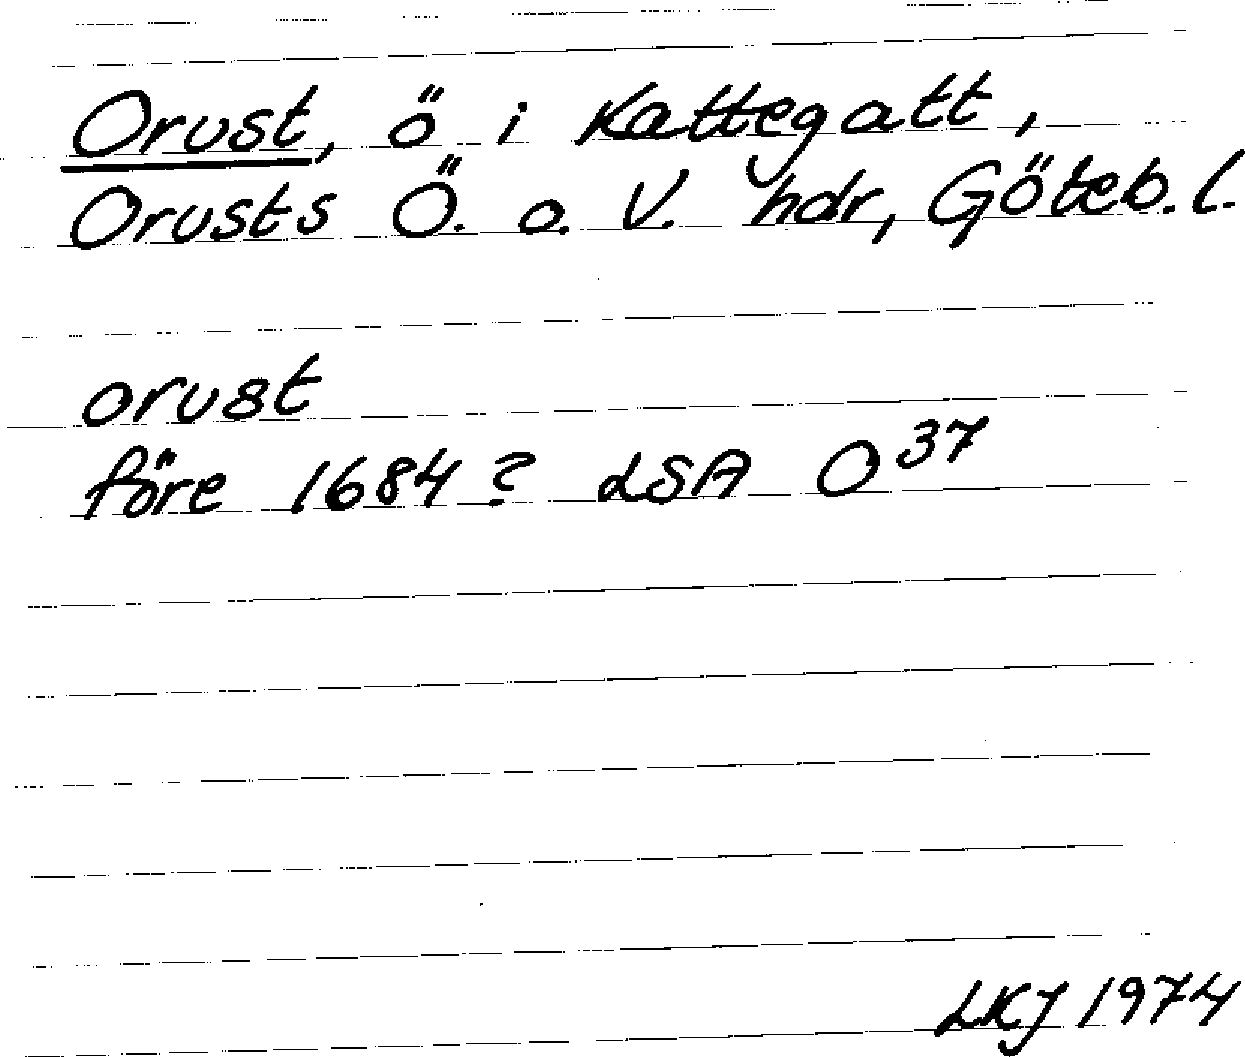 Orust, ö i Kattegatt,
Orusts Ö. o. V. hdr, Göteb. l.
orust
före 1684? LSA O³⁷
LKJ 1974